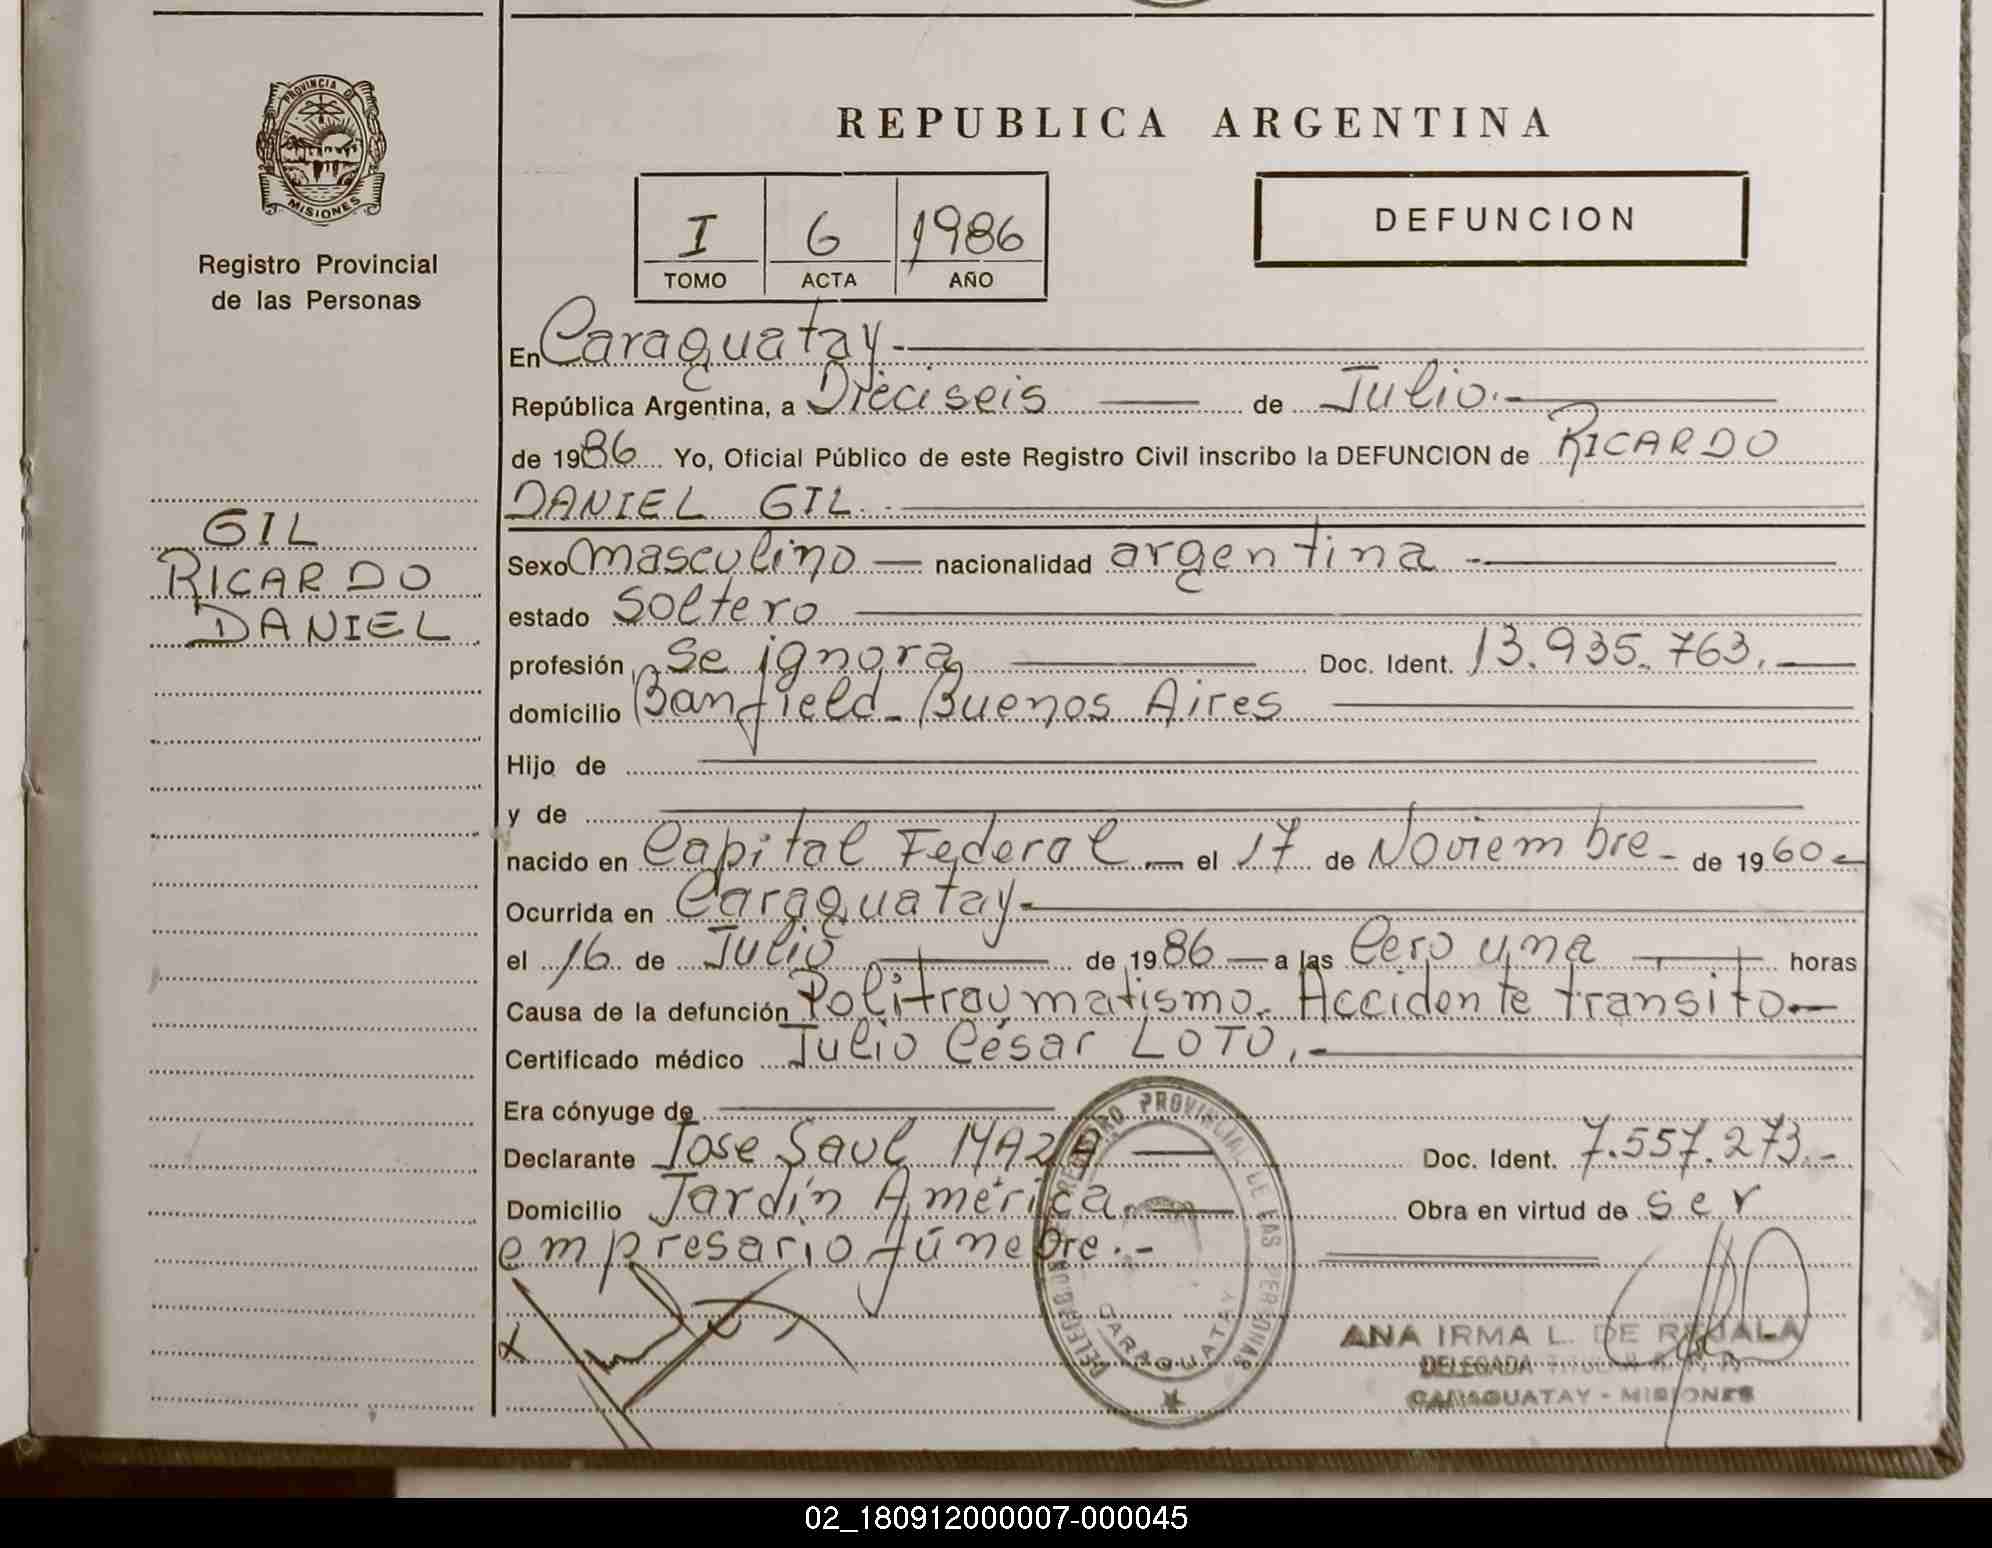 PROVINCIA DE
MISIONES
Registro Provincial
de las Personas
GIL
RICARDO
DANIEL
REPUBLICA ARGENTINA
I 6 1986
TOMO ACTA AÑO
DEFUNCION
En Caraguatay.-
República Argentina, a Dieciseis de Julio.-
de 1986 Yo, Oficial Público de este Registro Civil inscribo la DEFUNCION de RICARDO
DANIEL GIL.-
Sexo masculino nacionalidad argentina.-
estado Soltero
profesión se ignora Doc. Ident. 13.935.763.-
domicilio Banfield-Buenos Aires
Hijo de
y de
nacido en Capital Federal.- el 17 de Noviembre- de 1960-
Ocurrida en Caraguatay-
el 16 de Julio de 1986 - a las Cero una horas
Causa de la defunción Politraumatismo. Accidente transito.-
Certificado médico Julio César LOTO.-
Era cónyuge de
Declarante Jose Saul Doc. Ident. 7.557.273.-
Domicilio Jardín América.- Obra en virtud de ser
empresario fúnebre.-
REGISTRO PROVINCIAL DE LAS PERSONAS
CARAGUATAY
ANA IRMA L. DE REJALA
DELEGADA TITULAR
CARAGUATAY - MISIONES
02_180912000007-000045